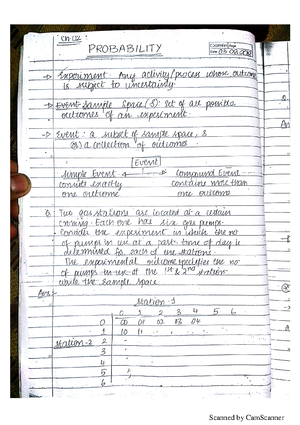 Ch-02
PROBABILITY
-> Experiment - Any activity/process whose outcome
is subject to uncertainty.
-> Event Sample Space (S): set of all possible
outcomes of an experiment
-> Event: a subset of sample space, S
a collection of outcomes
Event
Simple Event Compound Event
consists exactly contains more than
one outcome one outcome
Two gas stations are located at a certain
Each one has six gas pumps.
Consider the experiment in which the no
of pumps in use at a part. time of day is
determined for each of the stations.
The experimental outcome specifies the no
of pumps in use at the 1st & 2nd station
write the sample space
Ans:-
Station-1
0 1 2 3 4 5 6
0 00 01 02 03 04
1 10 11
Station-2 2
3
4
5
6
Scanned by CamScanner